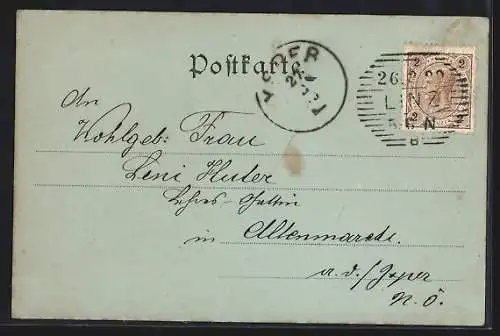 Postkarte
YSPER
26
LINZ
5-6 N
An
Wohlgeb: Frau
Leni Huter
Lehrers-Gattin
in Altenmarkt
a. d. / Ysper
N. Ö.